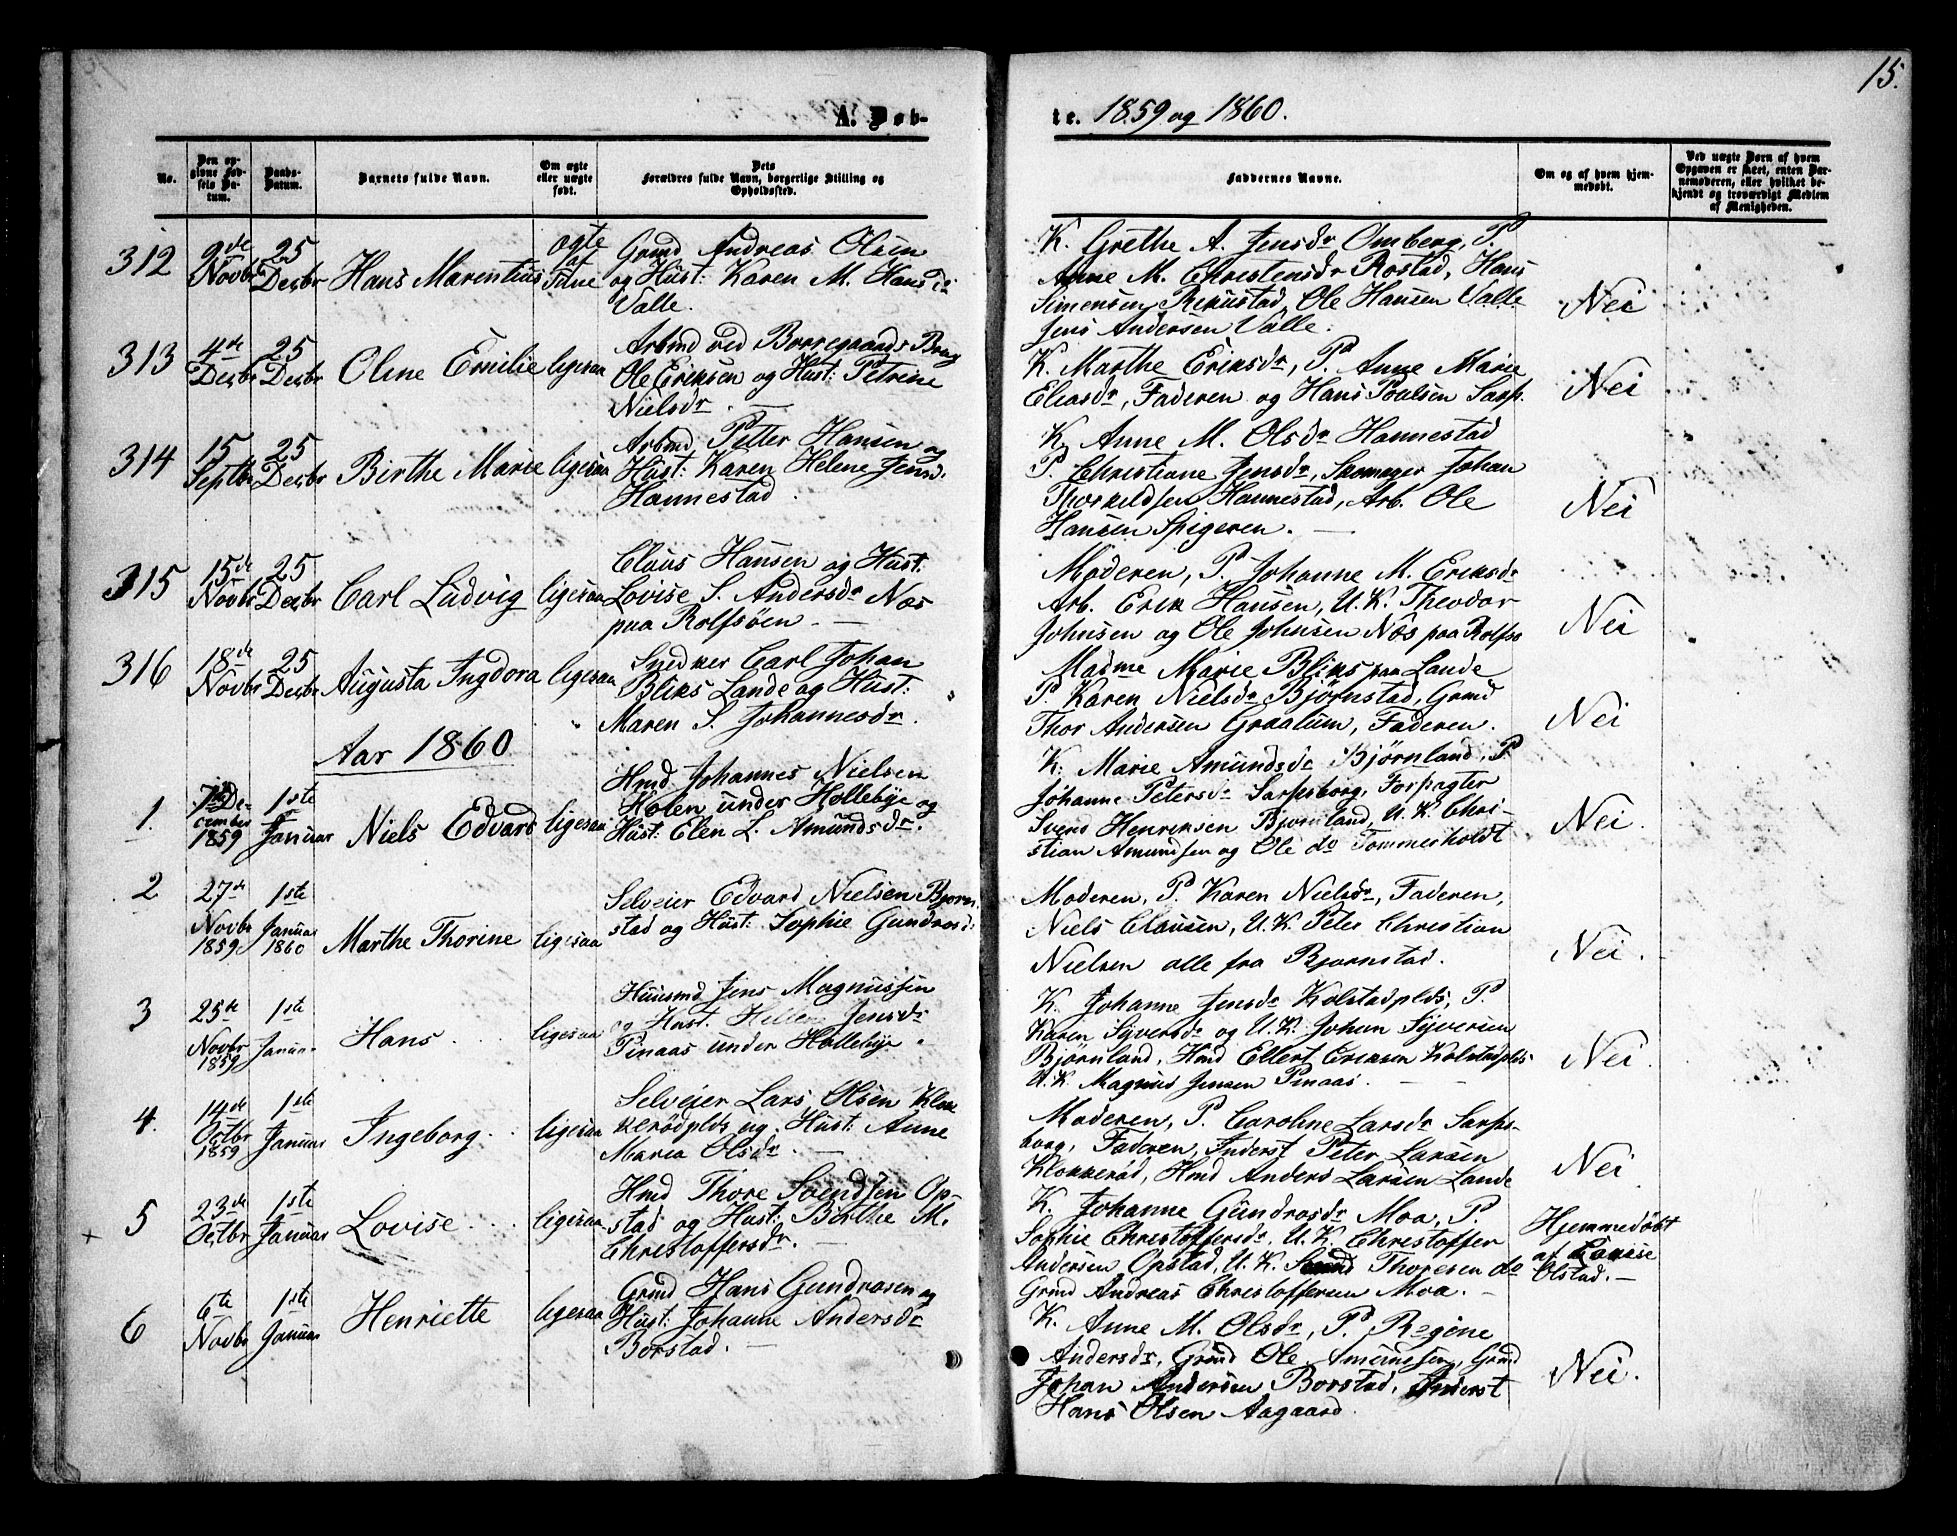 15.
A. Døb-
te. 1859 og 1860.
No.
Den op-
givne Fød-
sels Da-
tum.
Daabs-
Datum.
Barnets fulde Navn.
Om ægte
eller uægte
født.
Dets
Forældres fulde Navn, borgerlige Stilling og
Opholdssted.
Faddernes Navne.
Om og af hvem hjem-
medøbt.
Ved uægte Børn af hvem
Opgaven er skeet, enten Bar-
nemoderen, eller hvilket be-
kjendt og troværdigt Medlem
af Menigheden.
312
9de
Novbr
25
Decbr
Hans Marentius
ægte
af Tune
Grmd Andreas Olsen
og Hust: Karen M. Hansdr
Valle.
K. Grethe A. Jensdr Omberg, P.
Anne M. Christensdr Rostad, Hans
Simensen Rekustad, Ole Hansen Valle
Jens Andersen Valle.
Nei
313
4de
Decbr
25
Decbr
Oline Emilie
ligesaa
Arbmd ved Borregaards Brug
Ole Eriksen og Hust: Petrine
Nielsdr.
K. Marthe Eriksdr, P. Anne Marie
Eliasdr, Faderen og Hans Poulsen Sarp.
Nei
314
15
Septbr
25
Decbr
Birthe Marie
ligesaa
Arbmd Petter Hansen og
Hust: Karen Helene Jensd.
Hannestad.
K. Anne M. Olsdr Hannestad
P. Christiane Jensdr, Skomager Johan
Thorkildsen Hannestad, Arb. Ole
Hansen Spigeren.
Nei
315
15de
Novbr
25
Decbr
Carl Ludvig
ligesaa
Claus Hansen og Hust:
Lovise S. Andersdr Næs
paa Rolfsøen.
Moderen, P. Johanne M. Eriksdr
Arb. Erik Hansen, U.K. Theodor
Johnsen og Ole Johnsen Næs paa Rolfsø
Nei
316
18de
Novbr
25
Decbr
Augusta Ingdora
ligesaa
Snedker Carl Johan
Bliks Lande og Hust:
Maren S. Johannesdr.
Madme Marie Bliks paa Lande
P. Karen Nielsdr Bjørnstad, Grmd
Thor Andersen Graalum, Faderen.
Nei
Aar 1860
1.
7de De-
cember
1859
1ste
Januar
Niels Edvard
ligesaa
Hmd Johannes Nielsen
Holen under Hollebye og
Hust: Elen L. Amundsdr.
K. Marie Amundsdr Bjørnland, P
Johanne Petersdr Sarpsborg, Forpagter
Svend Henriksen Bjørnland, U.K. Chri-
stian Amundsen og Ole do Tommesholdt
Nei.
2
27de
Novbr
1859
1ste
Januar
1860
Marthe Thorine
ligesaa
Selveier Edvard Nielsen Bjørn
stad og Hust: Sophie Gundrosd:
Moderen, P. Karen Nielsdr, Faderen,
Niels Clausen, U.K. Peter Christian
Nielsen alle fra Bjørnstad.
Nei.
3
25de
Novbr
1859
1ste
Januar
Hans.
ligesaa
Huusmd Jens Magnussen
og Hust. Hellene Jensdr
Pinaas under Hollebye.
K. Johanne Jensdr Kolstadplds, P.
Karen Syversdr og U.K. Johan Syversen
Bjørnland, Hmd Ellert Eriksen Kolstadplds
U.K. Magnus Jensen Pinaas.
Nei.
4.
14de
Octbr
1859
1ste
Januar
Ingeborg.
ligesaa
Selveier Lars Olsen Klok
kerødplds og Hust: Anne
Maria Olsdr.
Moderen, P. Caroline Larsdr Sarps-
borg, Faderen, Inderst Peter Larsen
Klokkerød, Hmd Anders Larsen Lande
Nei
+
5
23de
Octbr
1ste
Januar
Lovise.
ligesaa
Hmd Thore Svendsen Op-
stad og Hust: Birthe M.
Christoffersdr.
K. Johanne Gundrosdr Moa, P.
Sophie Christoffersdr, U.K. Christoffer
Andersen Opstad, U.K. Svend Thoresen do
Grmd Andreas Christoffersen Moa.
Hjemmedøbt
af Lovise
Olstad.
6
6te
Novbr
1ste
Januar
Henriette
ligesaa
Grmd Hans Gundrosen og
Hust: Johanne Andersdr
Borstad.
K. Anne M. Olsdr, P. Regine
Andersdr, Grmd Ole Amundsen, Grmd
Johan Andersen Borstad, Inderst
Hans Olsen Aagaard.
Nei.